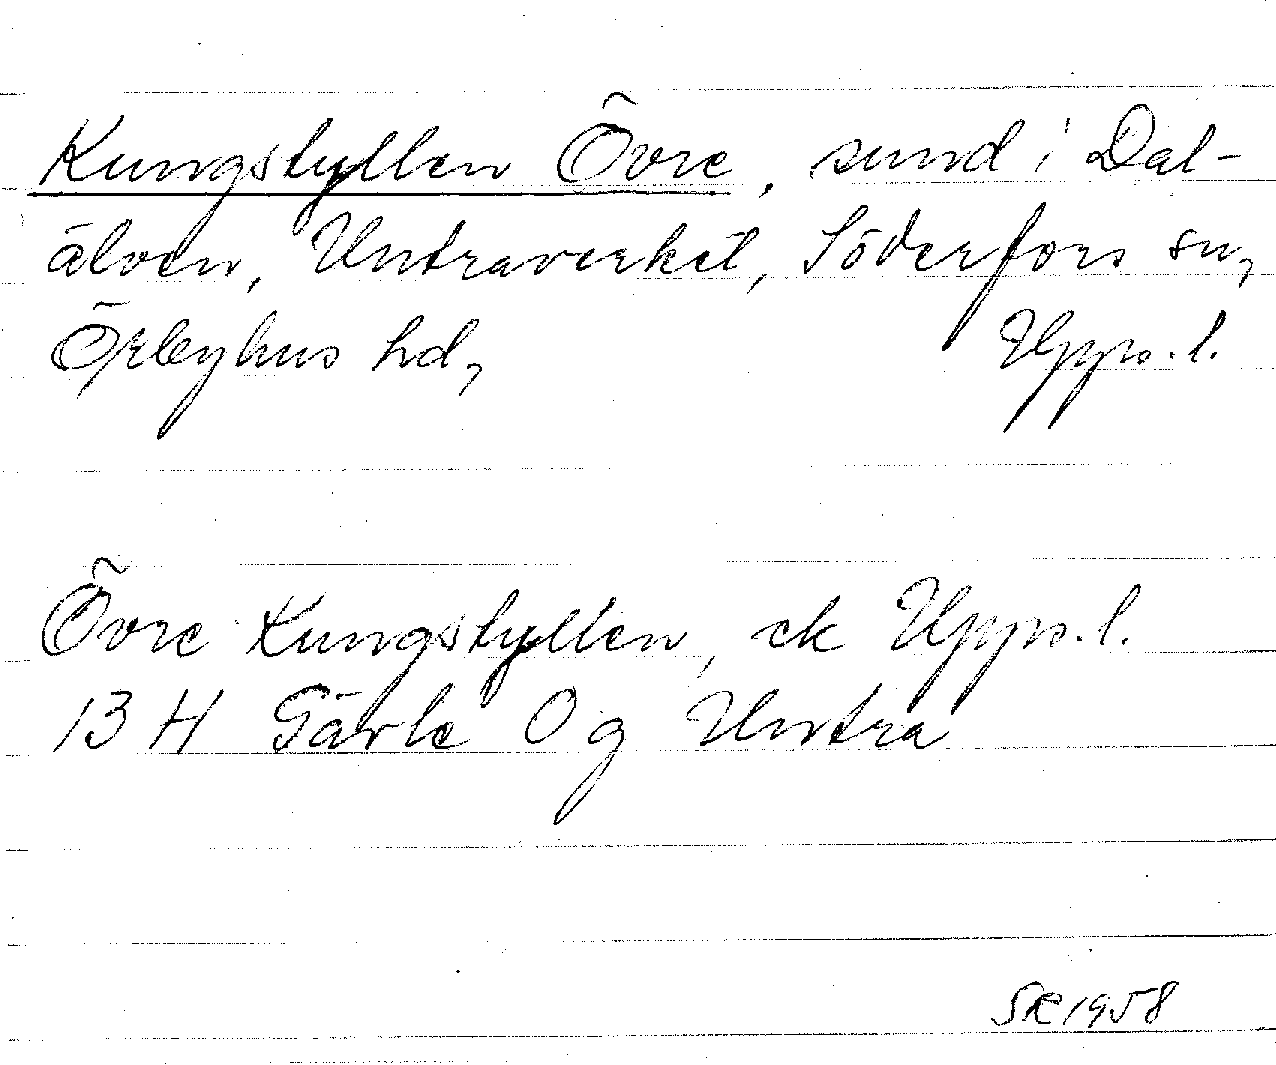 Kungstyllen Övre, sund i Dal-
älven, Untraverket, Söderfors sn,
Örbyhus hd, Upps.l.
Övre Kungstyllen, ek Upps.l.
13 H Gävle 0 g Untra
SR 1958